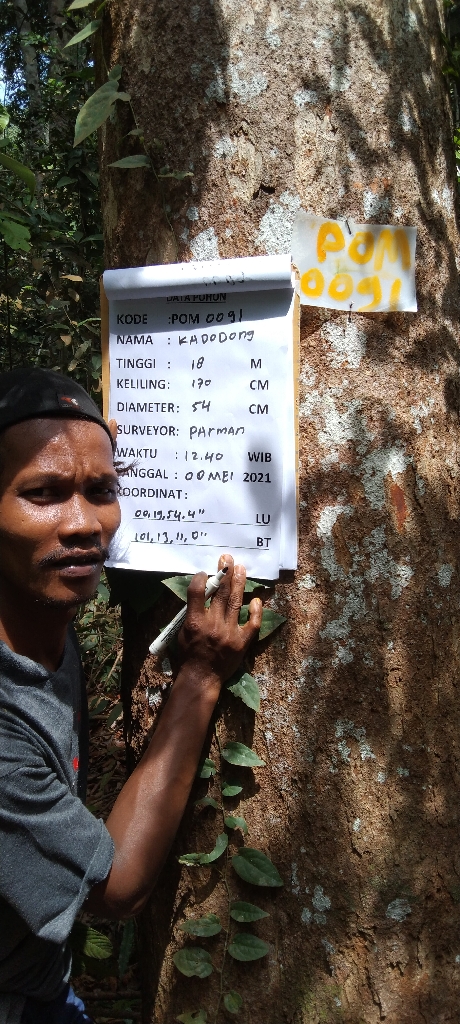 POM
0091
DATA POHON
KODE : POM 0091
NAMA : KADODONG
TINGGI : 18 M
KELILING: 170 CM
DIAMETER: 54 CM
SURVEYOR: PARMAN
WAKTU : 12.40 WIB
TANGGAL : 00 MEI 2021
KOORDINAT:
00,19,54,4" LU
101,13,11,0" BT